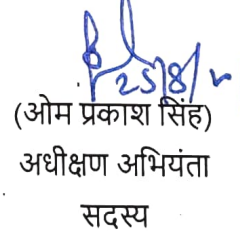 25/8/
(ओम प्रकाश सिंह)
अधीक्षण अभियंता
सदस्य